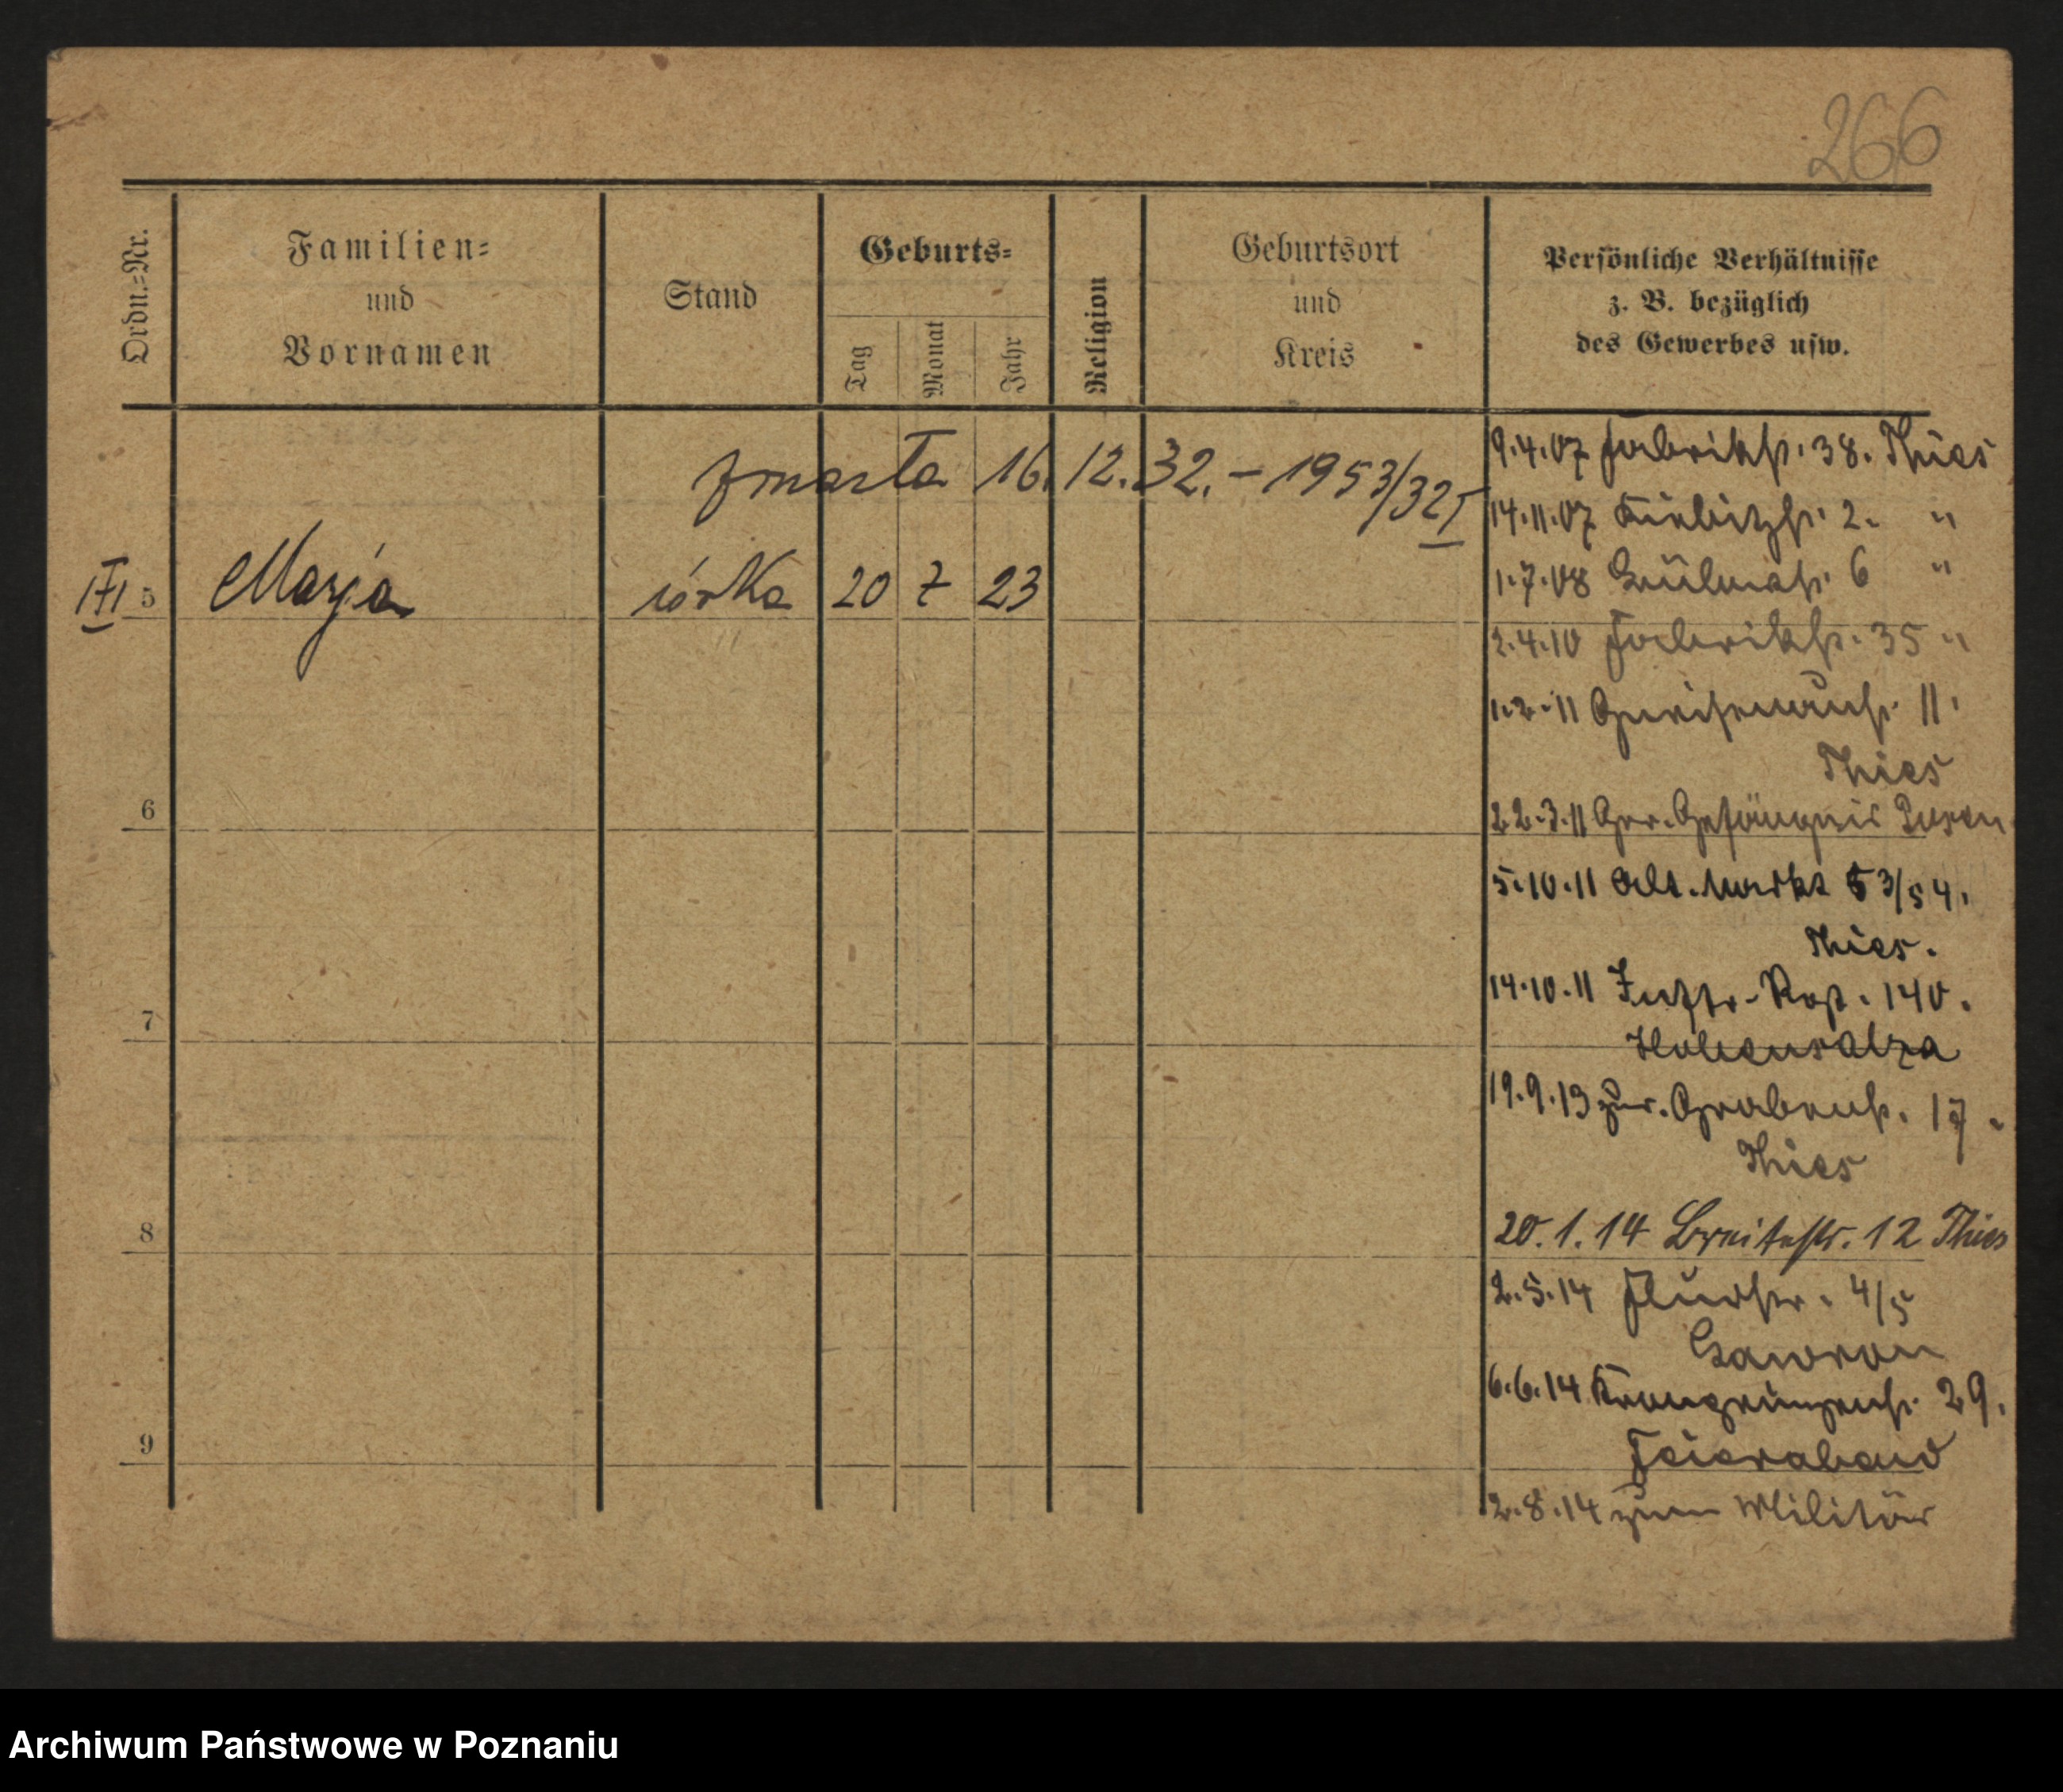 266
Ordn.=Nr.
Familien=
und
Vornamen
Stand
Geburts=
Tag
Monat
Jahr
Religion
Geburtsort
und
Kreis
Persönliche Verhältnisse
z. B. bezüglich
des Gewerbes usw.
zmarła 16.12.32. – 1953/32 I
III 5 Marja córka 20 7 23
6
7
8
9
9.4.07 Fabrikstr. 38. Thies
14.11.07 2. "
1.7.08 6 "
2.4.10 Fabrikstr. 35 "
1.2.11 Gneisenaustr. 11.
Thies
22.3.11 Ger. Gefängnis Posen
5.10.11 Alt. Markt 53/54.
Thies.
14.10.11 Inftr-Rgt. 140.
Hohensalza
19.9.13 zur. Grabenstr. 17.
Thies
20.1.14 Breitestr. 12 Thies
2.5.14 Flurstr. 4/5
Gawron
6.6.14 Kronprinzenstr. 29.
Feierabend
2.8.14 zum Militär
Archiwum Państwowe w Poznaniu